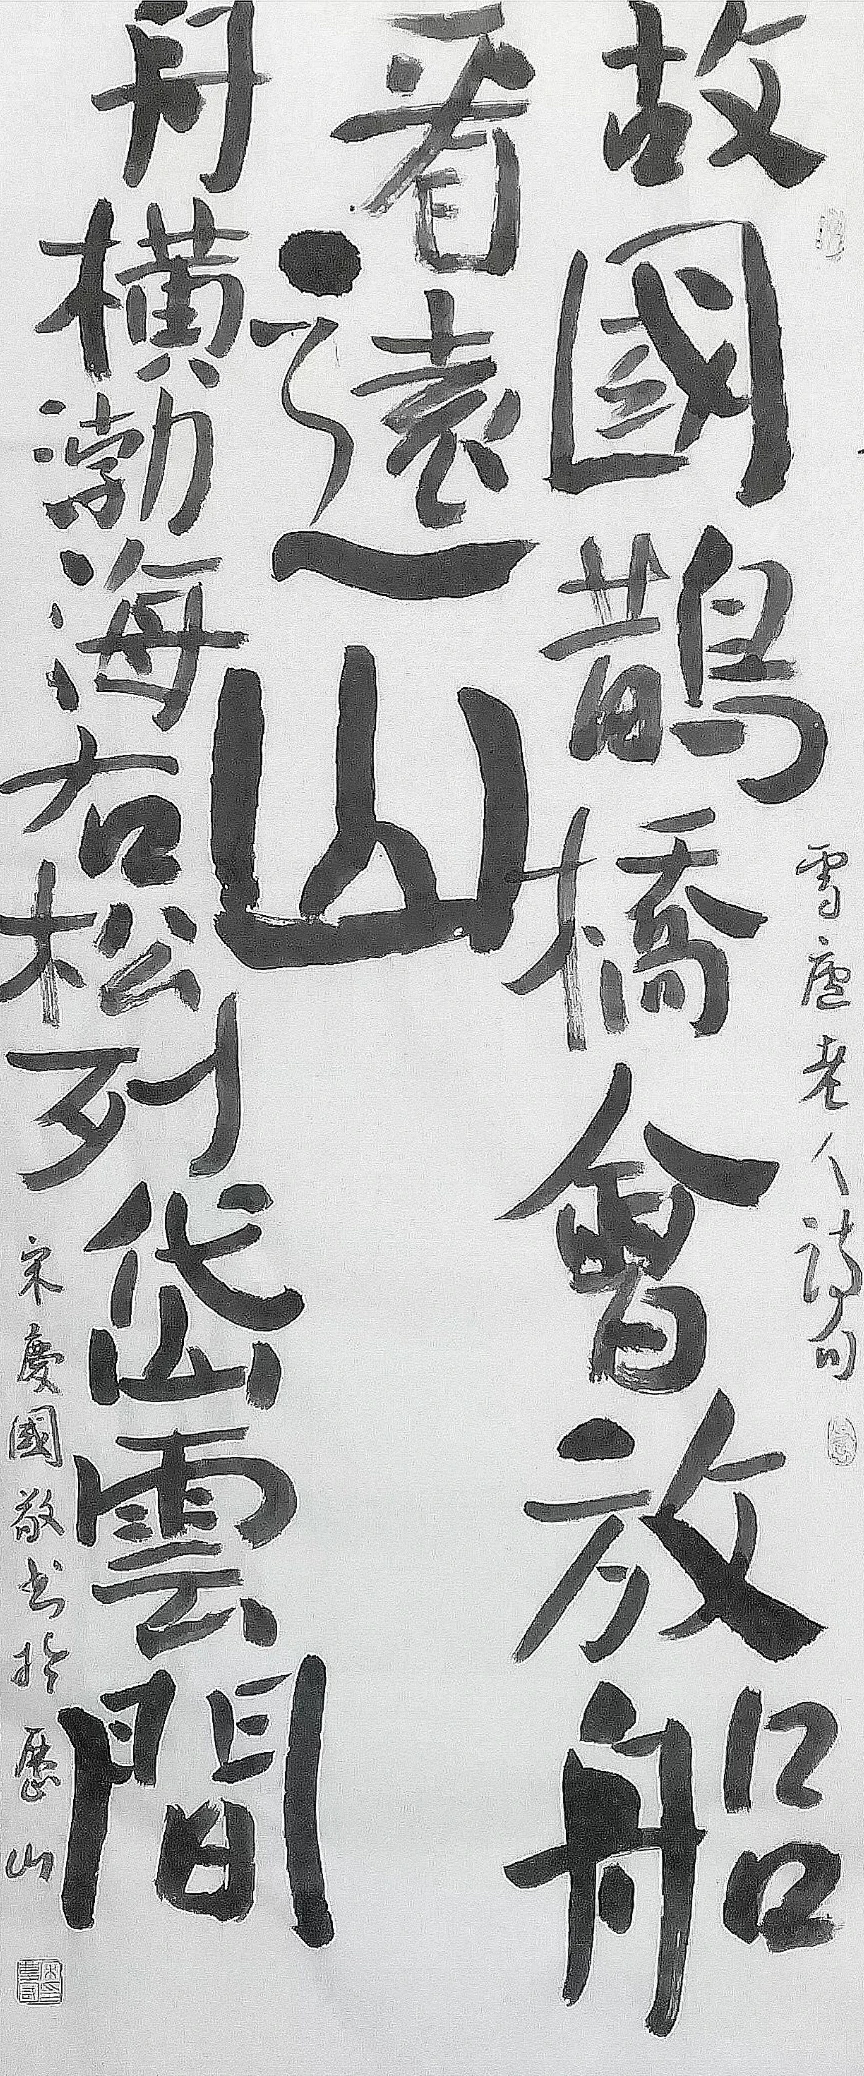 故國鵲橋會放船
看遠山
舟橫渤海右松列岱雲間
雪廬老人詩句
宋慶國敬书於歷山